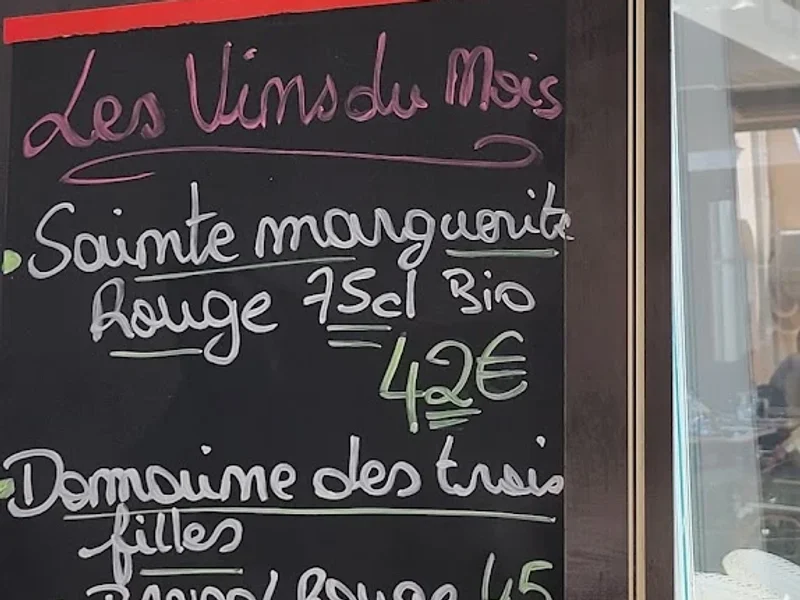 Les Vins du Mois
Sainte marguerite
Rouge 75cl Bio
42€
Domaine des trois
filles
Rouge 45